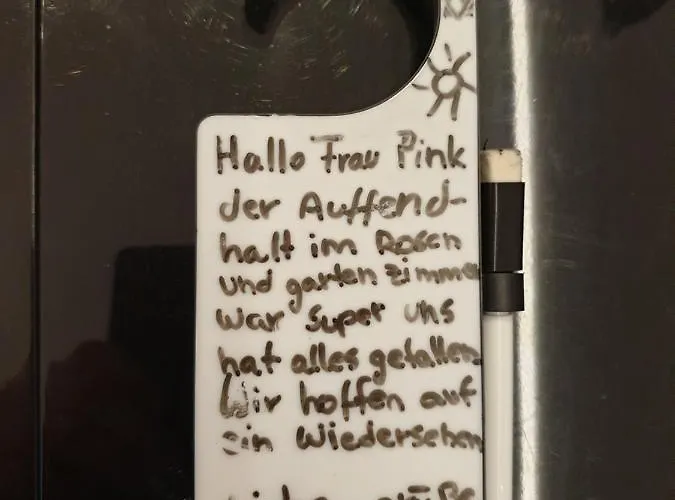 Hallo Frau Pink
der Auffend-
halt im Rosen
und garten zimmer
war super uns
hat alles gefallen
Wir hoffen auf
ein Wiedersehen